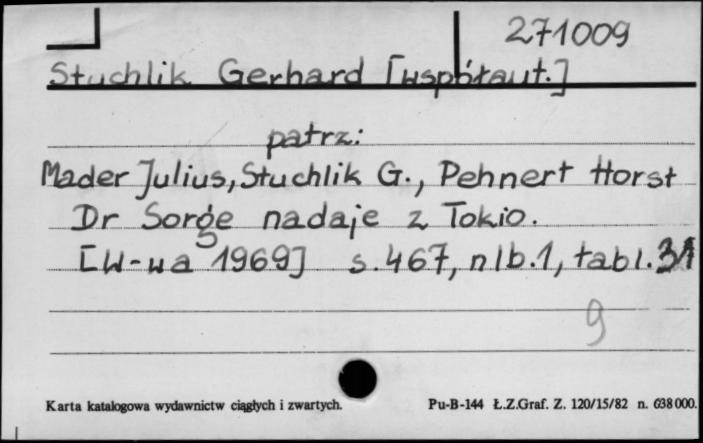 271009
Stuchlik Gerhard [współaut.]
patrz:
Mader Julius, Stuchlik G., Pehnert Horst
Dr Sorge nadaje z Tokio.
[W-wa 1969] s. 467, nlb. 1, tabl. 31
9
Karta katalogowa wydawnictw ciągłych i zwartych. Pu-B-144 Ł.Z.Graf. Z. 120/15/82 n. 638 000.